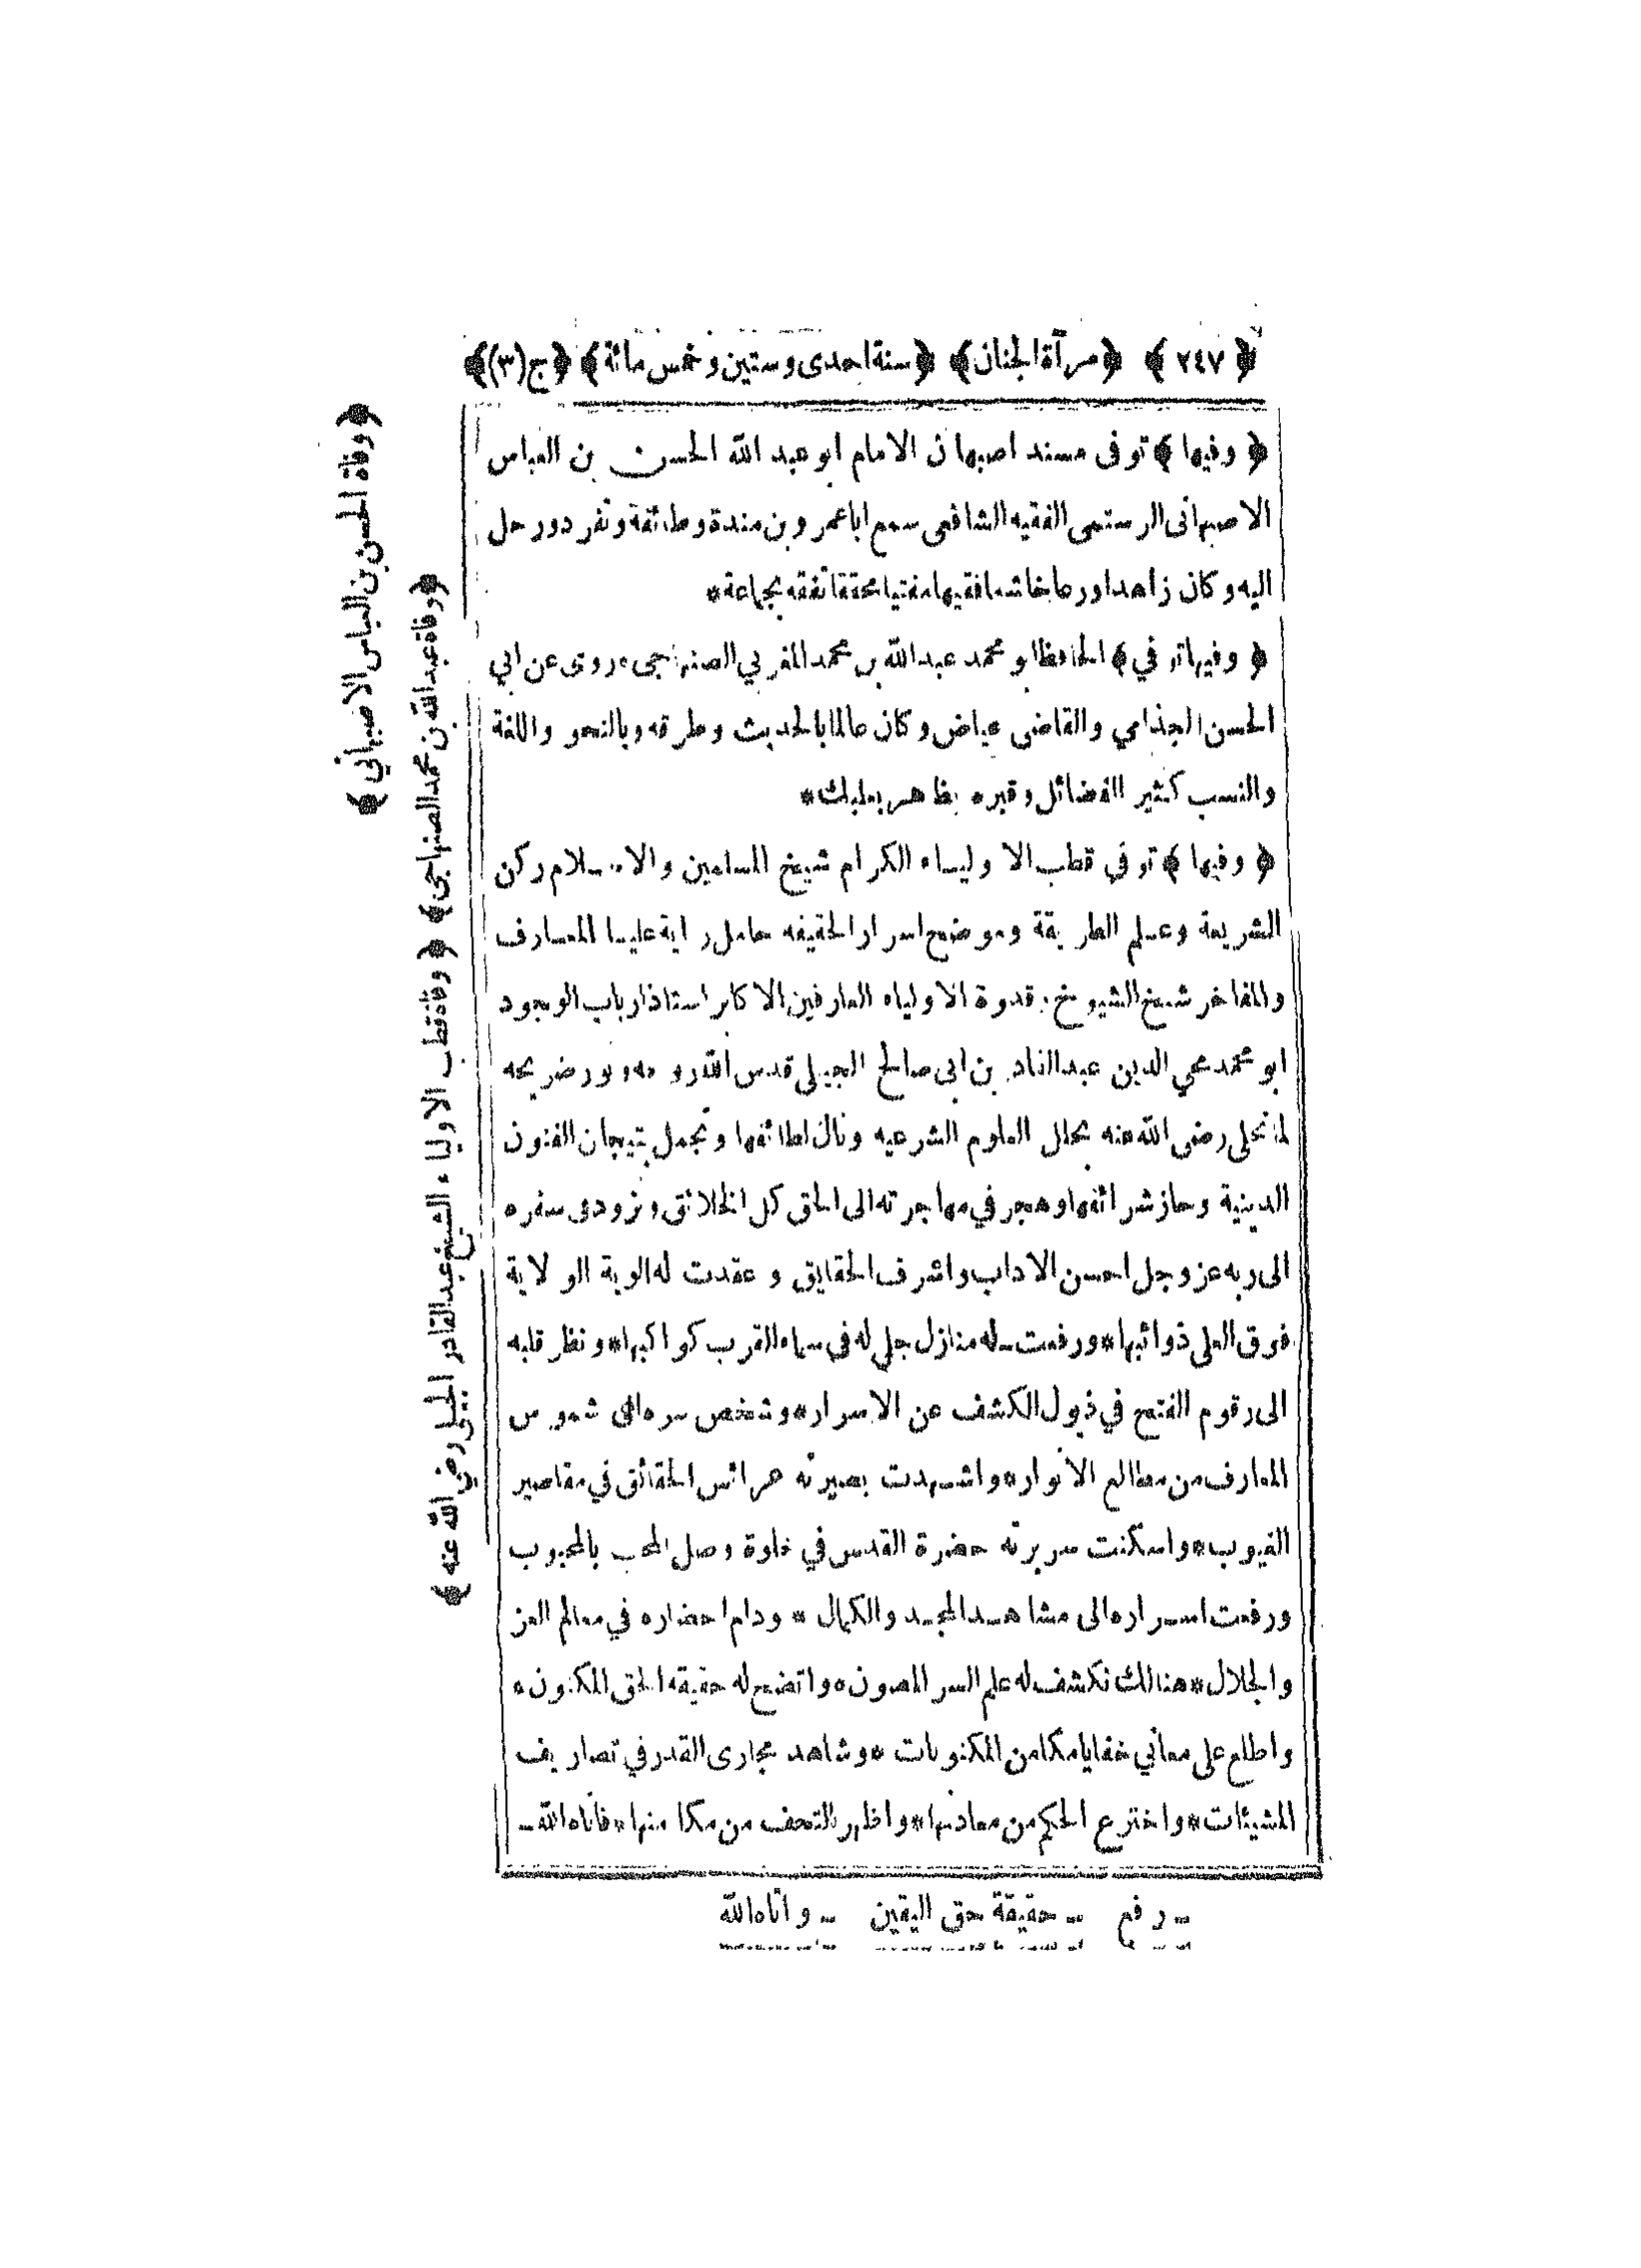 ﴿ ٢٤٧ ﴾ ﴿ مرآة الجنان ﴾ ﴿ سنة احدى وستين وخمس مائة ﴾ ﴿ ج (٣) ﴾
﴿ وفيها ﴾ توفى مسند اصبهان الامام ابو عبد الله الحسن بن العباس
الاصبهانى الرستمى الفقيه الشافعى سمع ابا عمر وبن مندة وطائفة وتفرد ورحل
اليه وكان زاهدا ورعا خاشعا فقيها مفتيا محققا تفقه بجماعة *
﴿ وفيها توفي ﴾ الحافظ ابو محمد عبد الله بن محمد المغربي الصنهاجى * روى عن ابي
الحسن الجذامي والقاضى عياض وكان عالما بالحديث وطرقه وبالنحو واللغة
والنسب كثير الفضائل وقبره بظاهر بعلبك *
﴿ وفيها ﴾ توفي قطب الاولياء الكرام شيخ المسلمين والاسلام ركن
الشريعة وعلم الطريقة وموضح اسرار الحقيقه حامل راية عليا المعارف
والمفاخر شيخ الشيوخ * قدوة الاولياء العارفين الاكابر استاذ ارباب الوجود
ابو محمد محي الدين عبد القادر بن ابى صالح الجيلى قدس الله روحه ونور ضريحه
لما تحلى رضى الله عنه بحلل العلوم الشرعيه ونال لطائفها وتجمل بتيجان الفنون
الدينية وحاز شرائفها وهجر في مهاجرته الى الحق كل الخلائق وتزود فى سفره
الى ربه عز وجل احسن الاداب واشرف الحقايق وعقدت له الوية الولاية
فوق العلى ذوائبها * ورفعت ـ له منازل جلي له فى سماء القرب كواكبها * ونظر قلبه
الى رقوم الفتح في ذيول الكشف عن الاسرار * وشخص سره الى شموس
المعارف من مطالع الانوار * واشهدت بصيرته عرائس الحقائق في مقاصير
الغيوب * واسكنت سريرته حضرة القدس في خلوة وصل المحب بالمحبوب
ورفعت اسراره الى مشاهد المجد والكمال * ودام احضاره في معالم العز
والجلال * هنالك نكشف له علم السر المصون * واتضح له حقيقه الحق المكنون *
واطلع على معاني خفايا مكامن المكنونات * وشاهد مجارى القدر في تصاريف
المشيئات * واخترع الحكم من معادنها * واظهر التحف من مكامنها * فاتاه الله ـ
ـ رفع ـ حقيقة حق اليقين ـ واتاه الله
﴿ وفاة الحسن بن العباس الاصبهاني ﴾
﴿ وفاة عبد الله بن محمد الصنهاجى ﴾ ﴿ وفاة قطب الاولياء الشيخ عبد القادر الجيلى رضي الله عنه ﴾